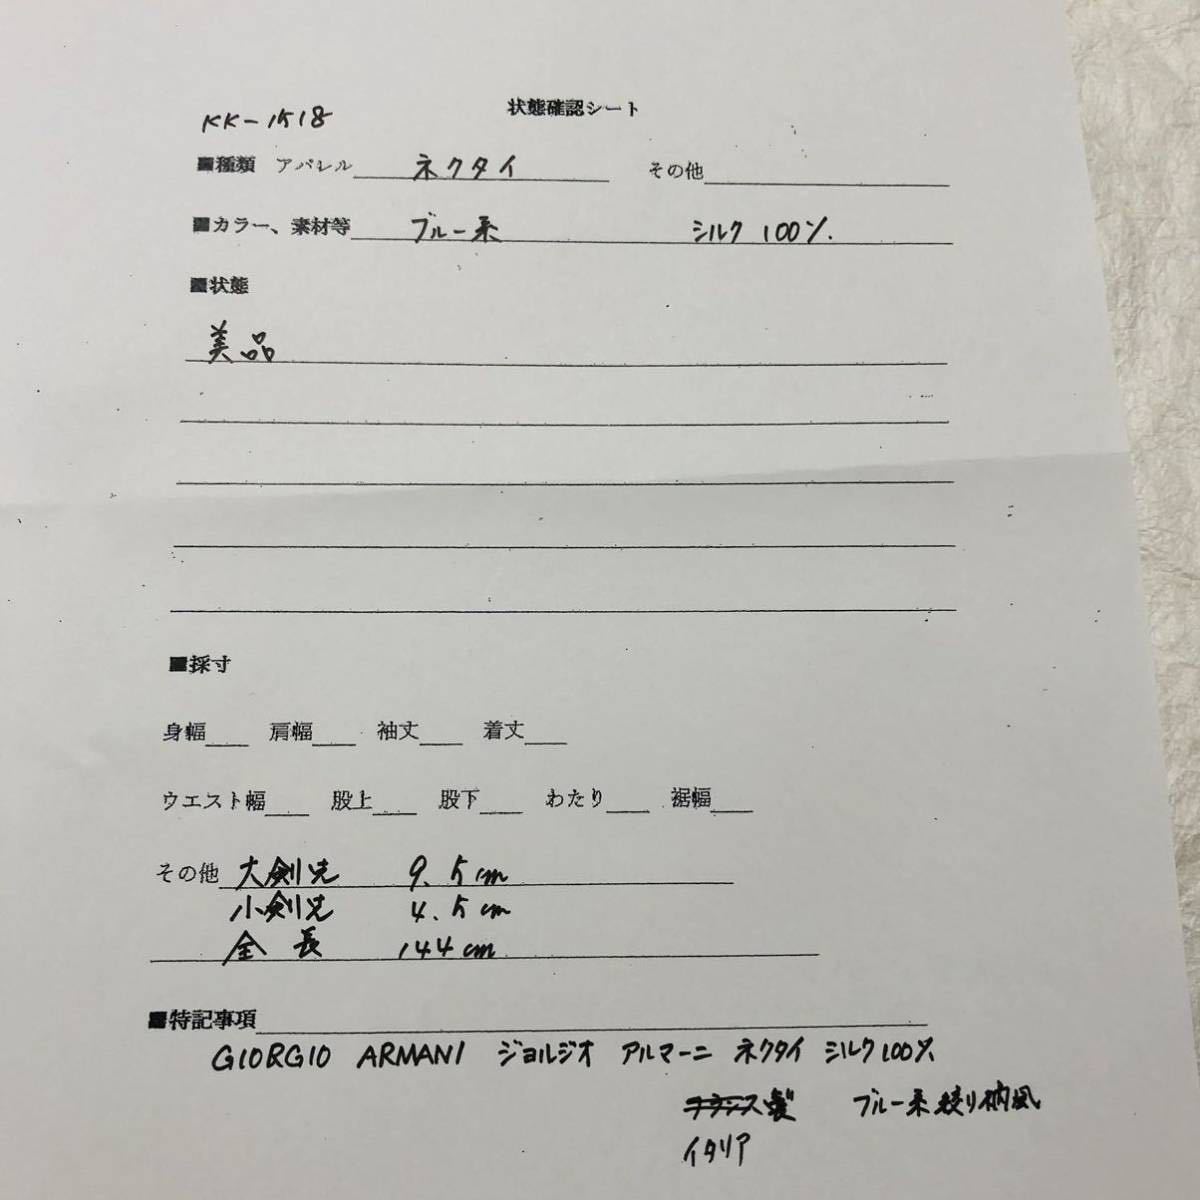 状態確認シート
KK-1518
■種類 アパレル ネクタイ その他
■カラー、素材等 ブルー系 シルク 100%.
■状態
美品
■採寸
身幅 肩幅 袖丈 着丈
ウエスト幅 股上 股下 わたり 裾幅
その他 大剣先 9.5cm
小剣先 4.5cm
全長 144cm
■特記事項
GIORGIO ARMANI ジョルジオ アルマーニ ネクタイ シルク100%
フランス製 ブルー系絞り柄風
イタリア